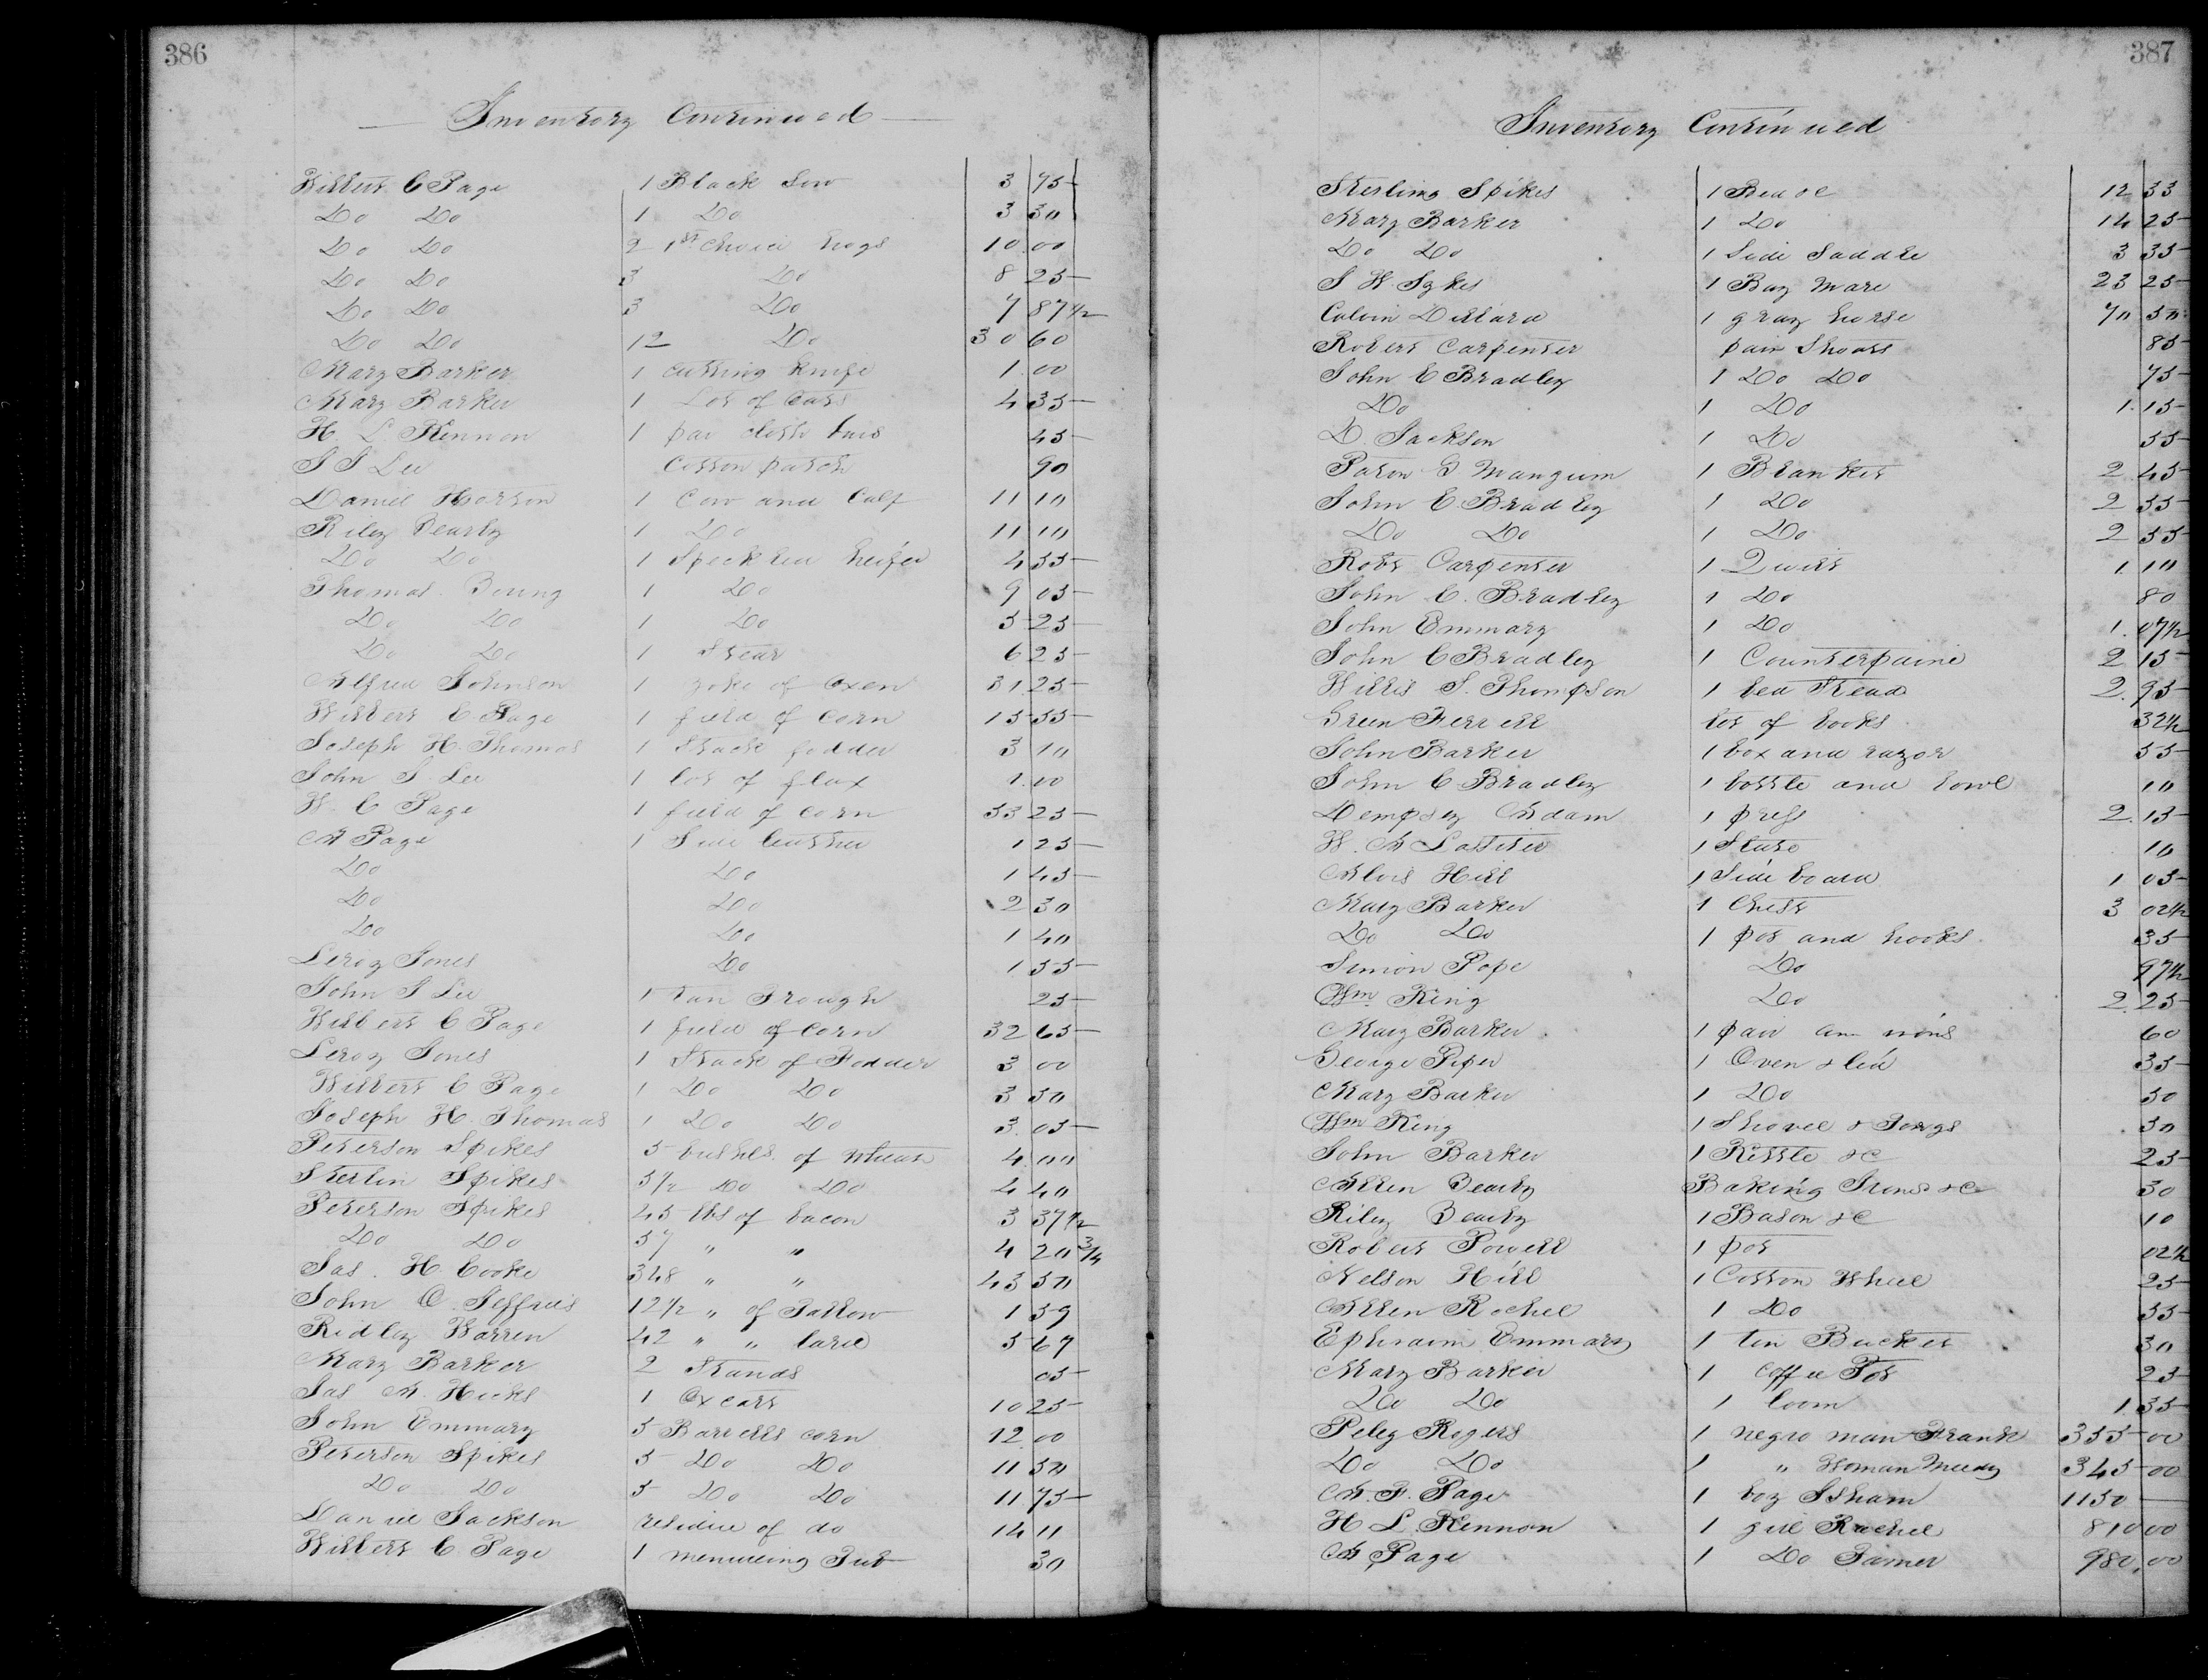 386
Inventory Continued
Wilbert C Page 1 Black Sow 3 75
Do Do 1 Do 3 30
Do Do 2 1st Choice hogs 10.00
Do Do 3 Do 8 25
Do Do 3 Do 7 87 1/2
Do Do 12 Do 30 60
Mary Barker 1 cutting knife 1.00
Mary Barker 1 Lot of Oats 4 35
H. L. Kennon 1 45
J J Lee Cotton patch 90
Daniel Horton 1 Cow and Calf 11 10
Riley Bearby 1 Do 11 10
Do Do 1 Speckled heifer 4 55
Thomas Young 1 Do 9 05
Do Do 1 Do 5 25
Do Do 1 Stear 6 25
Alfred Johnson 1 yoke of Oxen 31 25
Wilbert C Page 1 field of Corn 15 55
Joseph H. Thomas 1 Stack fodder 3 10
John J. Lee 1 lot of flax 1.00
W. C Page 1 field of corn 33 25
A Page 1 Side leather 1 25
Do Do 1 45
Do Do 2 30
Do Do 1 40
Leroy Jones Do 1 55
John J Lee 1 tan Trough 25
Wilbert C Page 1 field of corn 32 65
Leroy Jones 1 Stack of Fodder 3 00
Wilbert C Page 1 Do Do 3 50
Joseph H. Thomas 1 Do Do 3.05
Peterson Spikes 5 bushls. of Wheat 4.00
Sterlin Spikes 5 1/2 Do Do 4 40
Peterson Spikes 45 lbs of bacon 3 37 1/2
Do Do 57 " " 4 20 3/4
Jas. H. Cooke 348 " " 43 50
John O. Jeffries 12 1/2 " of Tallow 1 59
Ridley Warren 42 " " lard 5 67
Mary Barker 2 Stands 05
Jas A. Hicks 1 Ox cart 10 25
John Emmary 5 Barrells corn 12.00
Peterson Spikes 5 Do Do 11 50
Do Do 5 Do Do 11 75
Daniel Jackson residue of do 14 11
Wilbert C. Page 1 Tub 30
387
Inventory Continued
Sterling Spikes 1 Bed &c 12 33
Mary Barker 1 Do 14 25
Do Do 1 Side Saddle 3 35
S W. Sykes 1 Bay Mare 23 25
Calvin Dillard 1 gray horse 70 50
Robert Carpenter pair Shoats 85
John C Bradley 1 Do Do 75
Do 1 Do 1.15
D. Jackson 1 Do 55
Paton G Mangum 1 Blanket 2.45
John C. Bradley 1 Do 2 55
Do Do 1 Do 2 55
Robt Carpenter 1 Quilt 1.10
John C. Bradley 1 Do 80
John Emmary 1 Do 1.07 1/2
John C Bradley 1 Counterpaine 2 15
Willis S. Thompson 1 bed Stead 2.95
Green Ferrell lot of books 32 1/2
John Barker 1 box and razor 55
John C Bradley 1 bottle and bowl 10
Dempsey Adam 1 press 2.15
W. A Lattiter 1 10
Alvis Hill 1 Side board 1 05
Mary Barker 1 Chest 3 02 1/2
Do Do 1 pot and hooks 35
Simion Pope Do 97 1/2
Wm King Do 2.25
Mary Barker 1 pair irons 60
George Piper 1 Oven & led 35
Mary Barker 1 Do 50
Wm King 1 Shovel & Tongs 50
John Barker 1 Kettle &c 25
Allen Bearby Baking Irons &c 30
Riley Bearby 1 Bason &c 10
Robert Powell 1 pot 02 1/2
Nelson Hill 1 Cotton Wheel 25
Allen Rochel 1 Do 55
Ephraim Emmary 1 tin Bucket 30
Mary Barker 1 Coffee Pot 25
Do Do 1 loom 1.35
Peleg Rogers 1 negro man Frank 355 00
Do Do 1 " Woman 345 00
A. F. Page 1 boy Isham 1150
H L Kennon 1 girl Rachel 810 00
A Page 1 Do 980.00